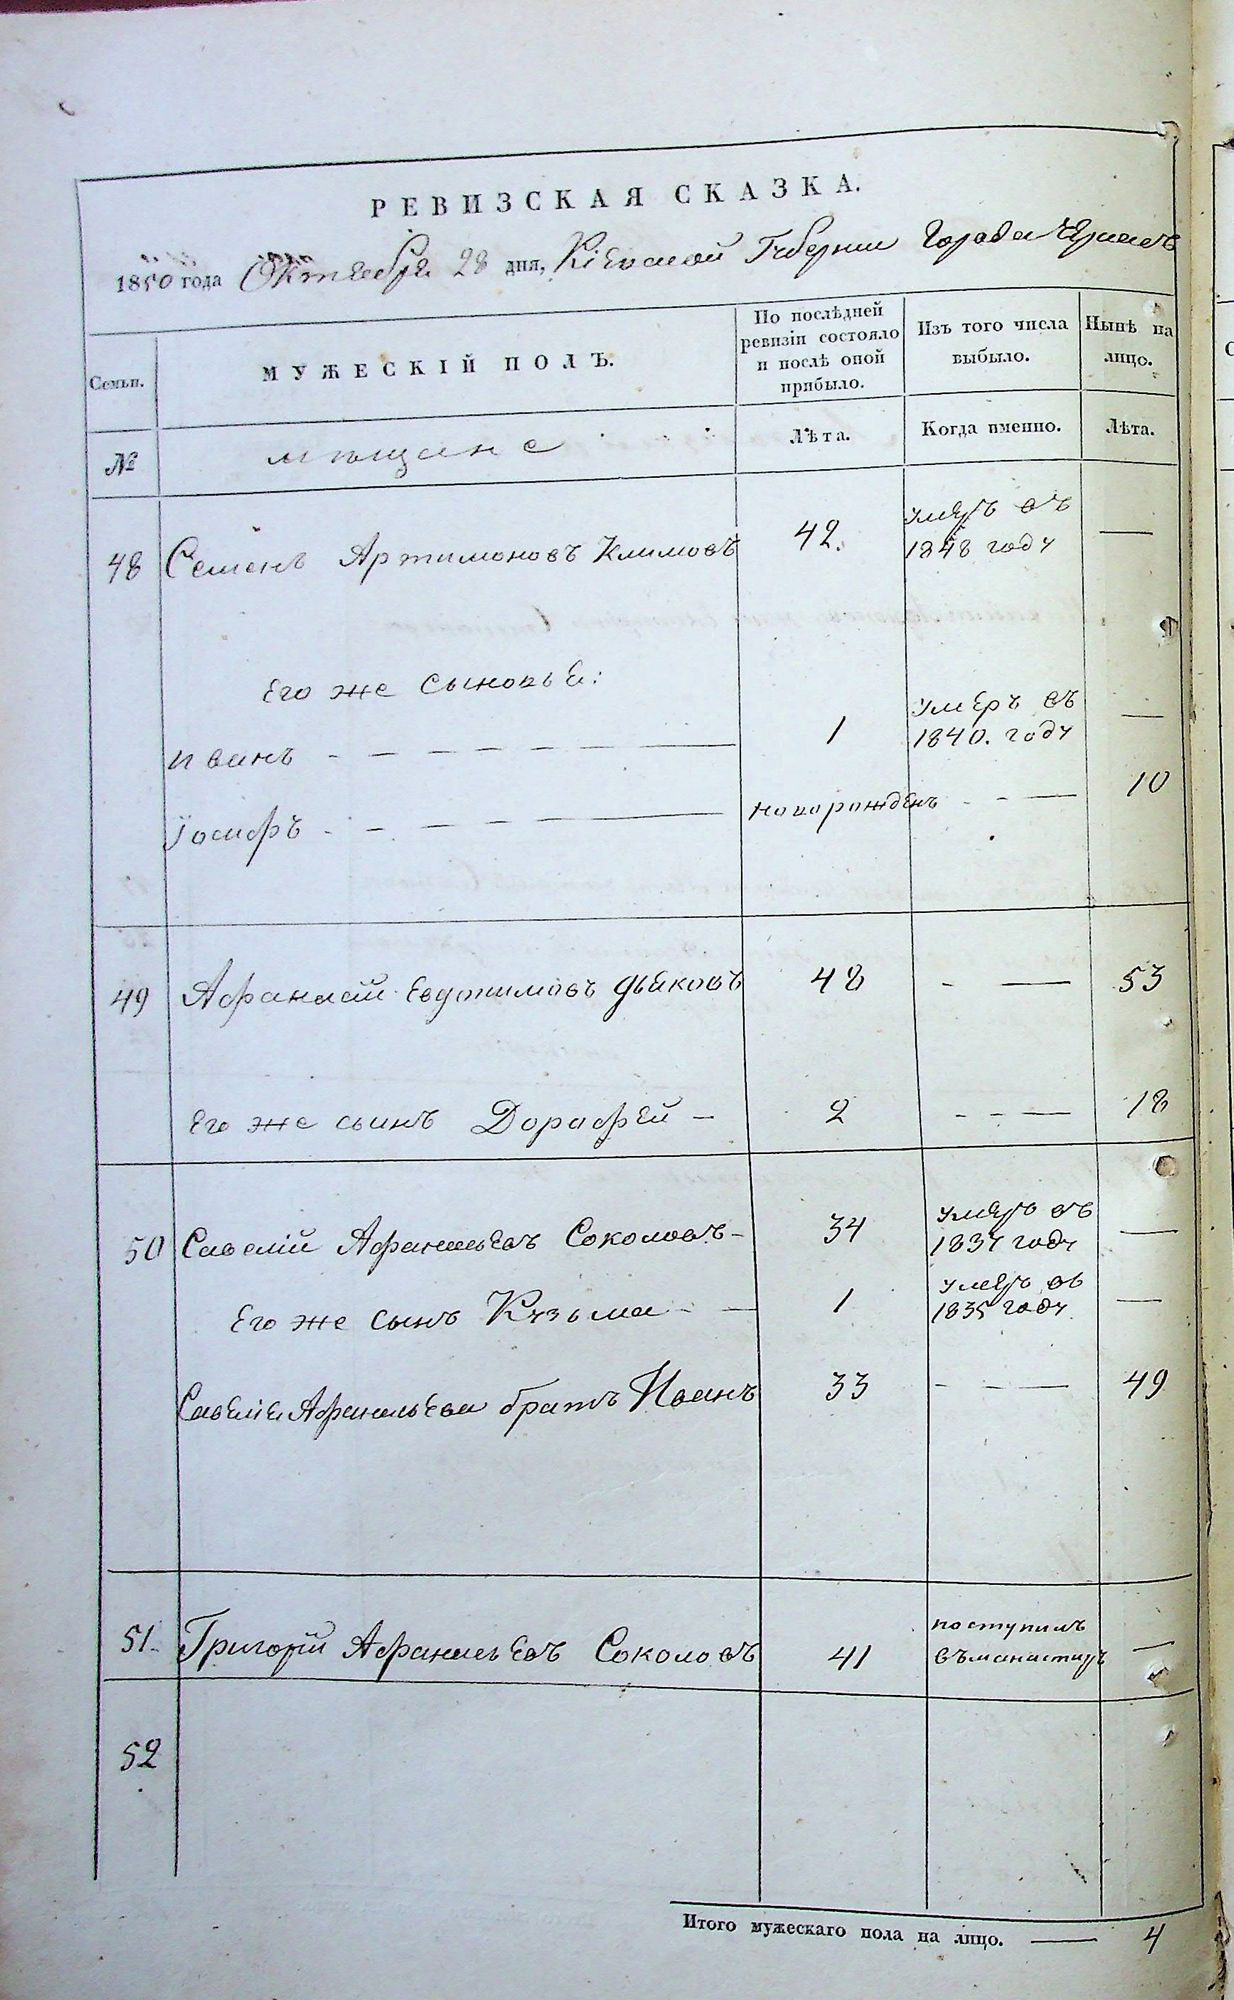 РЕВИЗСКАЯ СКАЗКА.
1850 года Октября 28 дня, Кіевской Губерніи Города
Семьи.
МУЖЕСКІЙ ПОЛЪ.
По послѣдней ревизіи состояло и послѣ оной прибыло.
Изъ того числа выбыло.
Нынѣ на лицо.
№
мѣщане
Лѣта.
Когда именно.
Лѣта.
48 Семенъ Артимоновъ Климовъ 42. умеръ въ 1848 году —
Его же сыновья:
Иванъ - - - - - - - — 1 умеръ въ 1840. году —
Іосифъ - - - - - - — новорожденъ - - — 10
49 Афанасій Евдокимовъ Дьяковъ 48 - — 53
Его же сынъ Дорофей — 2 - - — 18
50 Савелій Афанасьевъ Соколовъ - 34 умеръ въ 1837 году —
Его же сынъ Кузьма - — 1 умеръ въ 1835 году —
Савелія Афанасьева братъ Иванъ 33 - - — 49
51. Григорій Афанасьевъ Соколовъ 41 поступилъ въ манастиръ —
52
Итого мужескаго пола на лицо. — 4